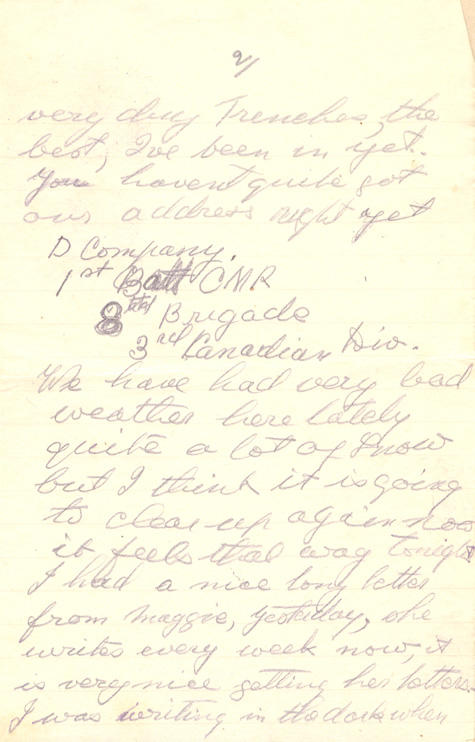 2/
very dry Trenches, the
best, I've been in yet.
You havent quite got
our address right yet
D Company.
1st Batt CMR
8th Brigade
3rd Canadian Div.
We have had very bad
weather here lately
quite a lot of snow
but I think it is going
to clear up again now
it feels that way tonight
I had a nice long letter
from Maggie, yesterday, she
writes every week now, it
is very nice getting her letters.
I was writing in the dark when